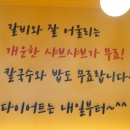 갈비와 잘 어울리는
개운한 샤브샤브가 무료!
칼국수와 밥도 무료랍니다~
다이어트는 내일부터~^^